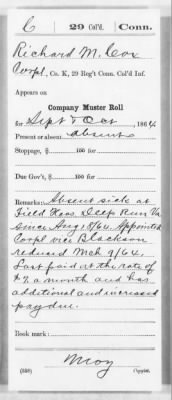 C 29 Col'd. Conn.
Richard M. Cox
Corpl, Co. K, 29 Reg't Conn. Col'd Inf.
Appears on
Company Muster Roll
for Sept & Oct, 1864.
Present or absent absent
Stoppage, $ 100 for
Due Gov't, $ 100 for
Remarks: Absent sick at
Field Hos. Deep Run Va
since Aug 18/64. Appointed
Corpl vice Blackson
reduced Mch 9/64.
Last paid at the rate of
$7 a month and has
additional and increased
pay due.
Book mark:
McCoy
(358) Copyist.